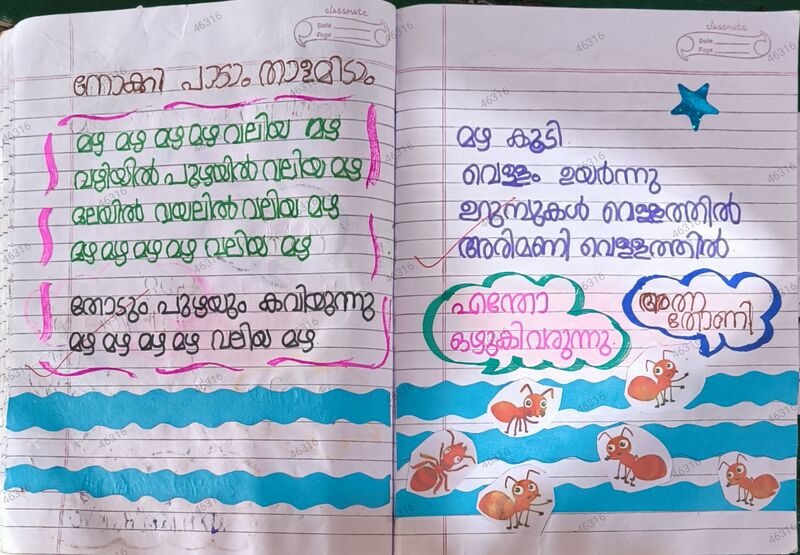 classmate
Date
Page
നോക്കി പാടാം താളമിടാം
മഴ മഴ മഴ മഴ വലിയ മഴ
വഴിയിൽ പുഴയിൽ വലിയ മഴ
മലയിൽ വയലിൽ വലിയ മഴ
മഴ മഴ മഴ മഴ വലിയ മഴ
തോടും പുഴയും കവിയുന്നു
മഴ മഴ മഴ മഴ വലിയ മഴ
classmate
Date
Page
മഴ കൂടി
വെള്ളം ഉയർന്നു
ഉറുമ്പുകൾ വെള്ളത്തിൽ
അരിമണി വെള്ളത്തിൽ
എന്തോ
ഒഴുകിവരുന്നു.
അതാ
തോണി
46316